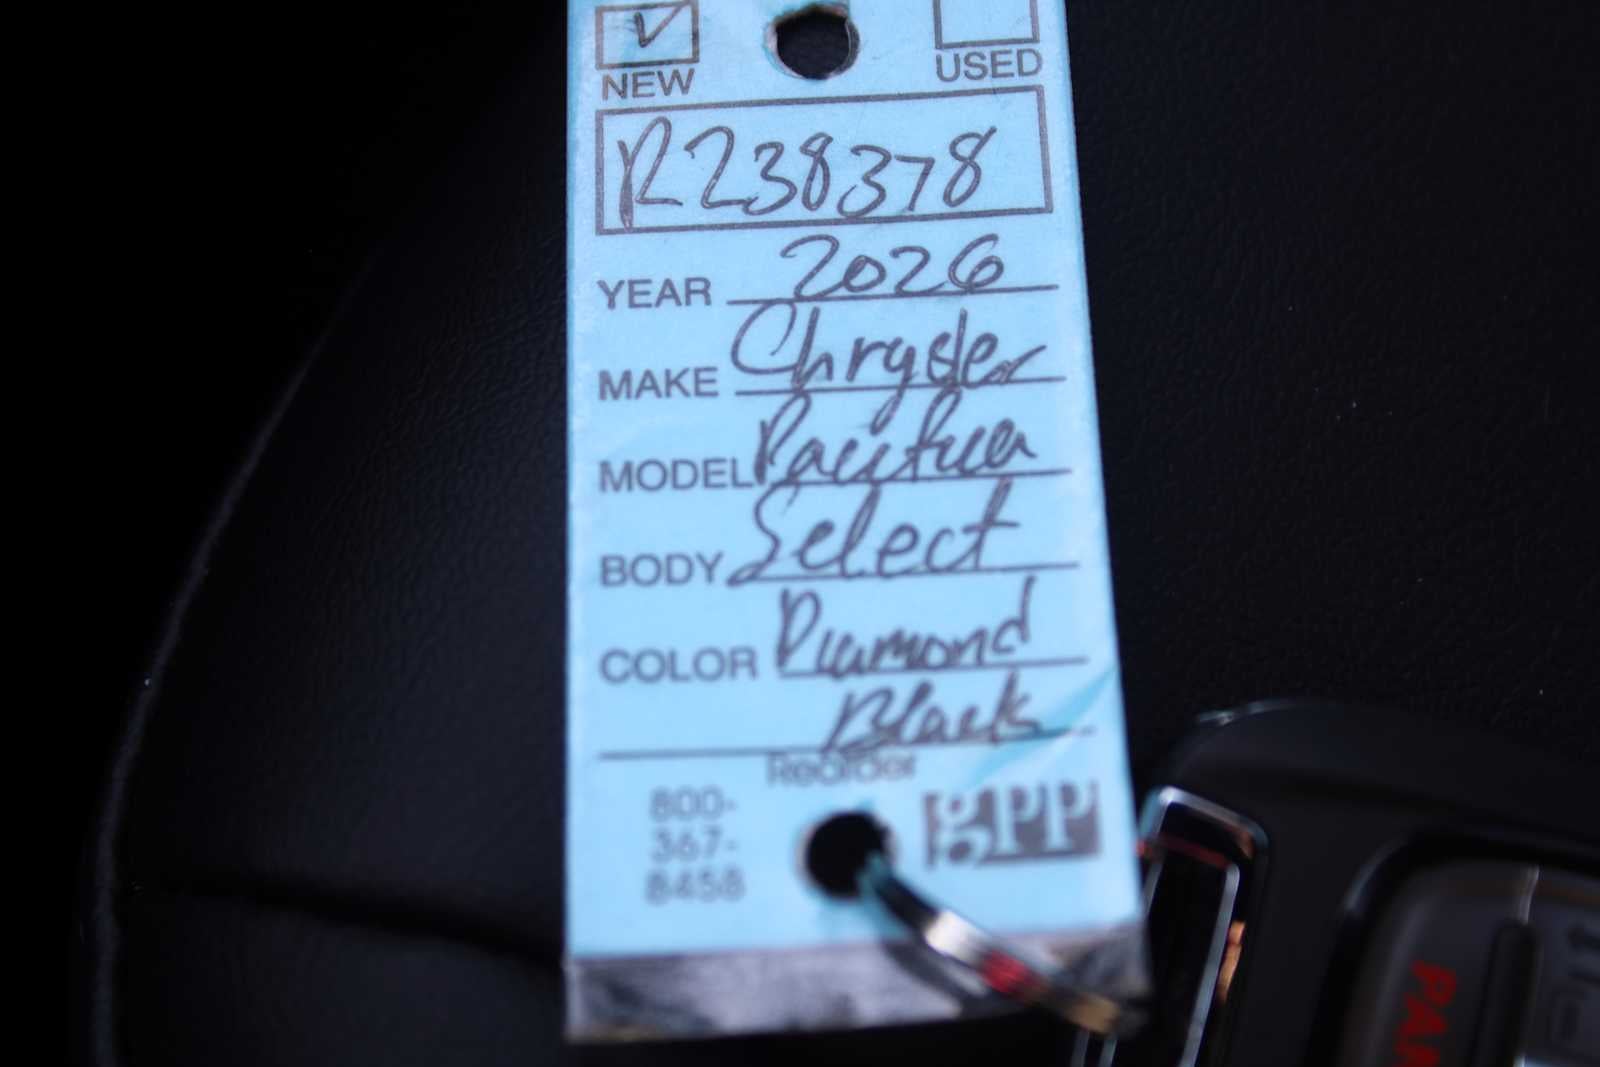 NEW USED
R238378
YEAR 2026
MAKE Chrysler
MODEL Pacifica
BODY Select
COLOR Diamond
Black
Reorder
800-
367-
8458
gpp